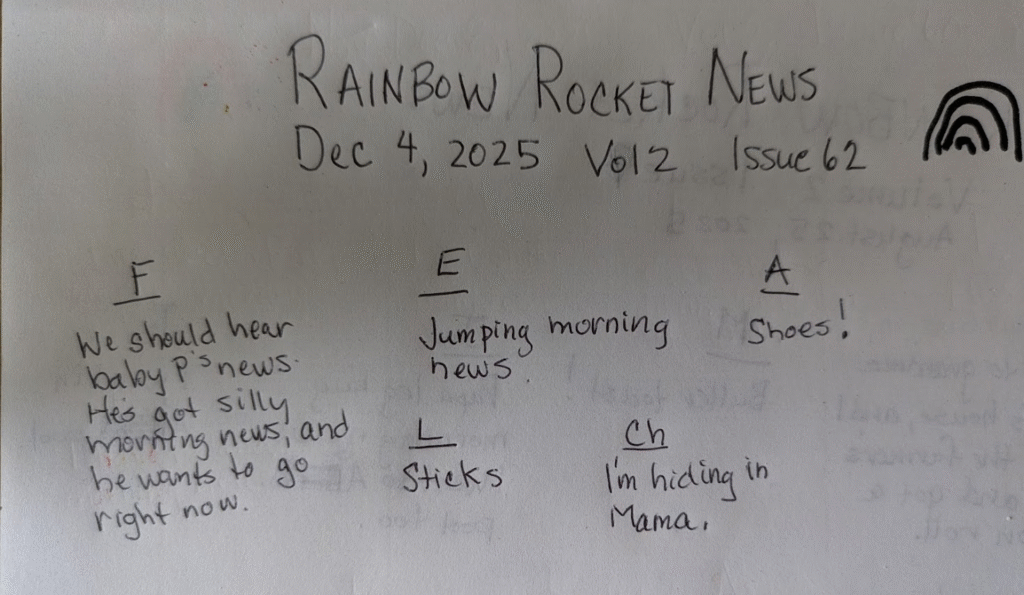 RAINBOW ROCKET NEWS
Dec 4, 2025 Vol 2 Issue 62
F
We should hear
baby P's news.
He's got silly
morning news, and
he wants to go
right now.
E
Jumping morning
news.
A
Shoes!
L
Sticks
Ch
I'm hiding in
Mama.